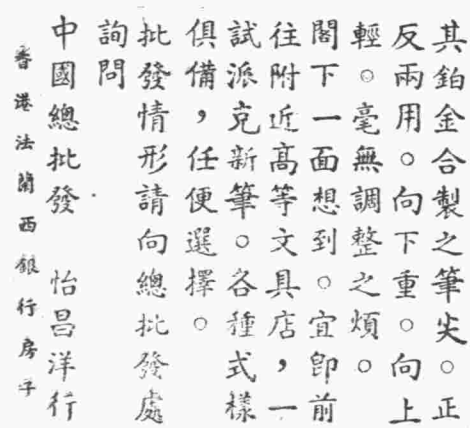 其鉑金合製之筆尖。正
反兩用。向下重。向上
輕。毫無調整之煩。
閣下一面想到。宜卽前
往附近高等文具店，一
試派克新筆。各種式樣
俱備，任便選擇。
批發情形請向總批發處
詢問
中國總批發 怡昌洋行
香港法蘭西銀行房子